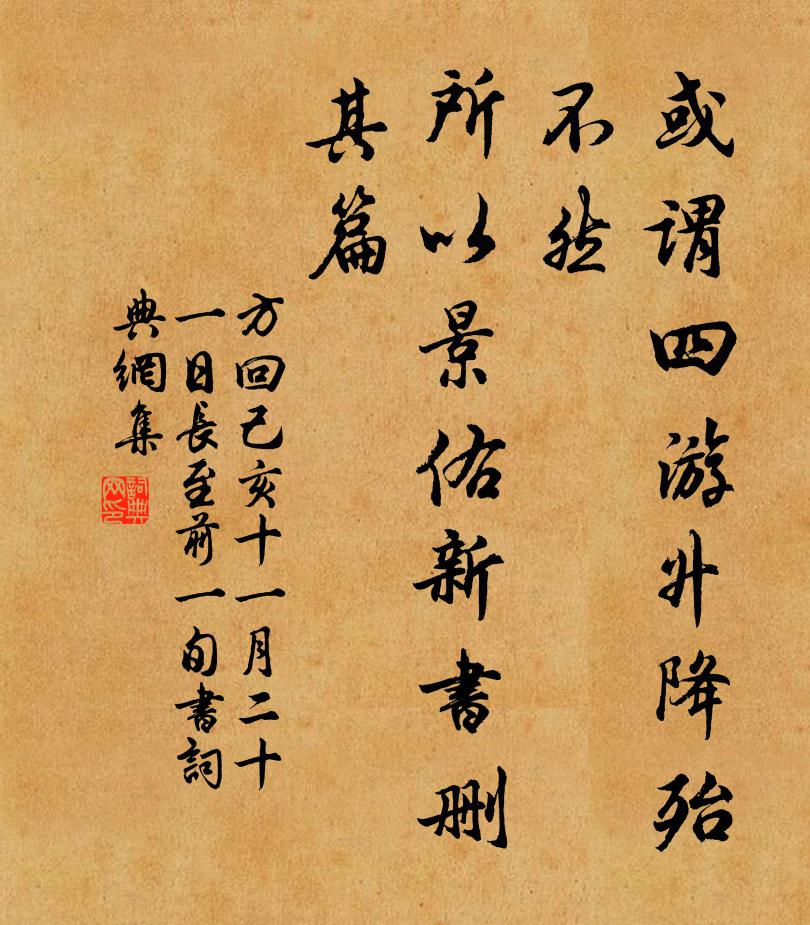 或谓四游升降殆
不然
所以景佑新書删
其篇
方回己亥十一月二十
一日長至前一旬書詞
典網集
詞典
网印